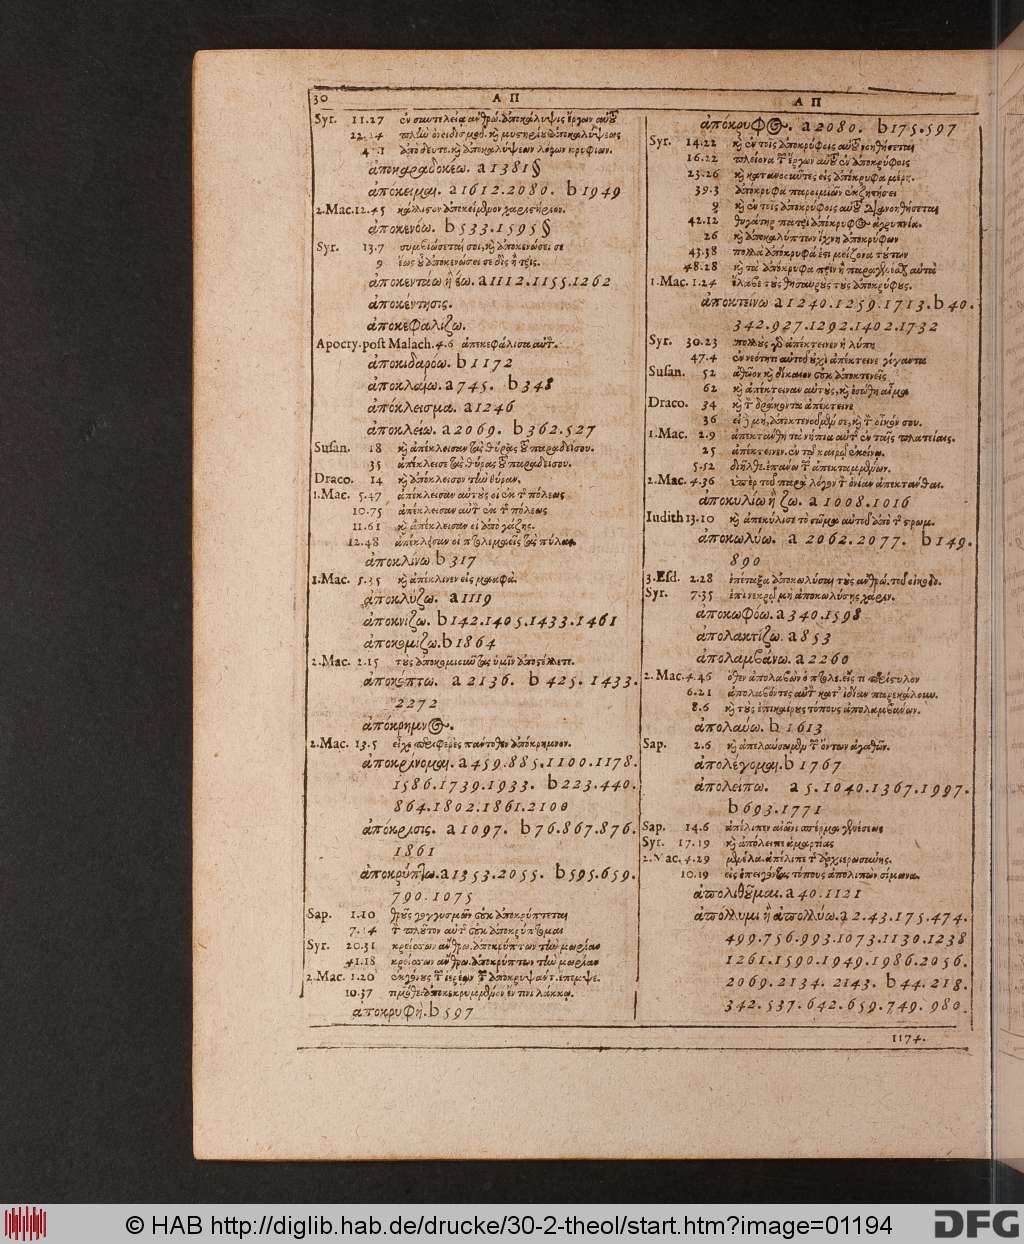 30 Α Π
Syr. 11.27 ἐν συντελείᾳ ἀνθρώ. ἀποκάλυψις ἔργων αὐτοῦ
22.24 καὶ μυστηρίου ἀποκαλύψεως
ἀποκαλύψεων λόγων κρυφίων.
ἀποκαραδοκέω. a 1381 §
ἀπόκειμαι. a 1612. 2080. b 1949
2.Mac. 12.45 κάλλιστον ἀποκείμενον χαριστήριον.
ἀποκενόω. b 533. 1595 §
Syr. 13.7 συμβιώσεταί σοι, καὶ ἀποκενώσει σε
9 ἕως οὗ ἀποκενώσει σε δὶς ἢ τρίς.
ἀποκεντάω ἢ έω. a 1112. 1155. 1262
ἀποκέντησις.
ἀποκεφαλίζω.
Apocry. post Malach. 4.6 ἀπεκεφάλισα αὐτ.
ἀποκιδαρόω. b 1172
ἀποκλαίω. a 745. b 348
ἀπόκλεισμα. a 1246
ἀποκλείω. a 2069. b 362. 527
Susan. 18 καὶ ἀπέκλεισαν τὰς θύρας τοῦ παραδείσου.
35 ἀπέκλεισε τὰς θύρας τοῦ παραδείσου.
Draco. 14 καὶ ἀπόκλεισον τὴν θύραν.
1.Mac. 5.47 ἀπέκλεισαν αὐτοὺς οἱ ἐκ τῆς πόλεως
10.75 ἀπέκλεισαν αὐτ ἐκ τῆς πόλεως
11.61 καὶ ἀπέκλεισαν οἱ ἀπὸ γάζης.
12.48 ἀπέκλεισαν οἱ πτολεμαεῖς τὰς πύλας
ἀποκλίνω b 317
1.Mac. 5.35 καὶ ἀπέκλινεν εἰς μασφά.
ἀποκλύζω. a 1119
ἀποκνίζω. b 142. 1405. 1433. 1461
ἀποκομίζω. b 1864
2.Mac. 2.15 τοὺς ἀποκομιοῦντας ὑμῖν ἀποστέλλετε.
ἀποκόπτω. a 2136. b 425. 1433.
2272
ἀπόκρημνος.
2.Mac. 13.5 περιφερὲς πάντοθεν ἀπόκρημνον.
ἀποκρίνομαι. a 459. 885. 1100. 1178.
1586. 1739. 1933. b 223. 440.
864. 1802. 1861. 2100
ἀπόκρισις. a 1097. b 76. 867. 876.
1861
ἀποκρύπτω. a 1353. 2055. b 595. 659.
790. 1075
Sap. 1.10 θροῦς γογγυσμῶν οὐκ ἀποκρύπτεται
7.14 τ πλοῦτον αὐτ οὐκ ἀποκρύπτομαι
Syr. 20.31 κρείσσων ἄνθρω. ἀποκρύπτων τὴν μωρίαν
41.18 κρείσσων ἄνθρω. ἀποκρύπτων τὴν μωρίαν
2.Mac. 1.20 ἐκγόνους τῶν ἱερέων τῶν ἀποκρυψάντ. ἔπεμψε.
10.37 ἀποκεκρυμμένον ἔν τινι λάκκῳ.
ἀποκρυφή. b 597
Α Π
ἀπόκρυφος. a 2080. b 175. 597
Syr. 14.22 καὶ ἐν τοῖς ἀποκρύφοις αὐτοῦ νοηθήσεται
16.22 πλείονα τῶν ἔργων αὐτοῦ ἐν ἀποκρύφοις
23.26 καὶ κατανοοῦντες εἰς ἀπόκρυφα μέρη.
39.3 ἀπόκρυφα παροιμιῶν ἐκζητήσει
9 καὶ ἐν τοῖς ἀποκρύφοις αὐτοῦ διανοηθήσεται
42.12 θυγάτηρ πατρὶ ἀπόκρυφος ἀγρυπνία.
26 καὶ ἀποκαλύπτων ἴχνη ἀποκρύφων
43.38 πολλὰ ἀπόκρυφά ἐστι μείζονα τούτων
48.28 καὶ τὰ ἀπόκρυφα πρὶν ἢ παραγενέσθαι αὐτά
1.Mac. 1.24 ἔλαβε τοὺς θησαυροὺς τοὺς ἀποκρύφους.
ἀποκτείνω a 1240. 1259. 1713. b 40.
342. 927. 1292. 1402. 1732
Syr. 30.23 πολλοὺς γὰρ ἀπέκτεινεν ἡ λύπη
47.4 ἐν νεότητι αὐτοῦ οὐχὶ ἀπέκτεινε γίγαντα
Susan. 52 ἀθῶον καὶ δίκαιον οὐκ ἀποκτενεῖς
62 καὶ ἀπέκτειναν αὐτοὺς, καὶ ἐσώθη αἷμα
Draco. 34 καὶ τ δράκοντα ἀπέκτεινε
36 εἰ δὲ μὴ, ἀποκτενοῦμέν σε, καὶ τ οἶκόν σου.
1.Mac. 2.9 ἀπεκτάνθη τὰ νήπια αὐτῆς ἐν ταῖς πλατείαις.
25 ἀπέκτεινεν. ἐν τῷ καιρῷ ἐκείνῳ.
5.52 διῆλθε. ἐπάνω τῶν ἀπεκταμμένων.
2.Mac. 4.36 ὑπὲρ τοῦ παρὰ λόγον τ ὀνίαν ἀπεκτάνθαι.
ἀποκυλίω ἢ ζω. a 1008. 1016
Iudith 13.10 καὶ ἀπεκύλισε τὸ σῶμα αὐτοῦ ἀπὸ τ στρωμ.
ἀποκωλύω. a 2062. 2077. b 149.
890
3.Esd. 2.28 ἐπέταξα ἀποκωλῦσαι τοὺς ἀνθρώ. τοῦ οἰκοδο.
Syr. 7.35 ἐπὶ νεκρῷ μὴ ἀποκωλύσῃς χάριν.
ἀποκωφόω. a 340. 1598
ἀπολακτίζω. a 853
ἀπολαμβάνω. a 2260
2.Mac. 4.46 ὅθεν ἀπολαβὼν ὁ πτολε. εἴς τι περίστυλον
6.21 ἀπολαβόντες αὐτ κατ' ἰδίαν παρεκάλουν.
8.6 καὶ τοὺς ἐπικαίρους τόπους ἀπολαμβάνων.
ἀπολαύω. b 1613
Sap. 2.6 καὶ ἀπολαύσωμεν τῶν ὄντων ἀγαθῶν.
ἀπολέγομαι. b 1767
ἀπολείπω. a 5. 1040. 1367. 1997.
b 693. 1771
Sap. 14.6 ἀπέλιπεν αἰῶνι σπέρμα γενέσεως
Syr. 17.19 καὶ ἀπόλειπε ἁμαρτίας
2.Mac. 4.29 μενέλα. ἀπέλιπε τ ἀρχιερωσύνης.
10.19 εἰς ἐπείγοντας τόπους ἀπολιπὼν σίμωνα.
ἀπολιθοῦμαι. a 40. 1121
ἀπόλλυμι ἢ ἀπολλύω. a 2. 43. 175. 474.
499. 756. 993. 1073. 1130. 1238
1261. 1590. 1949. 1986. 2056.
2069. 2134. 2143. b 44. 218.
342. 537. 642. 659. 749. 980.
1174.
© HAB http://diglib.hab.de/drucke/30-2-theol/start.htm?image=01194
DFG